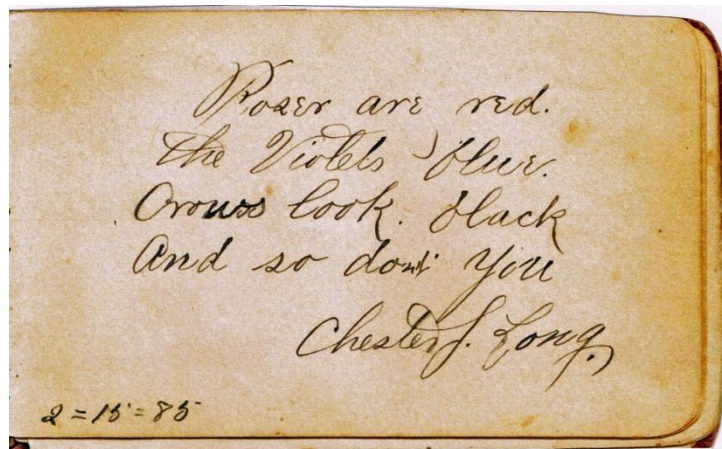 Roses are red.
the Violets blue.
Crows look. black
And so dont you
Chester J. Long.
2=15=85